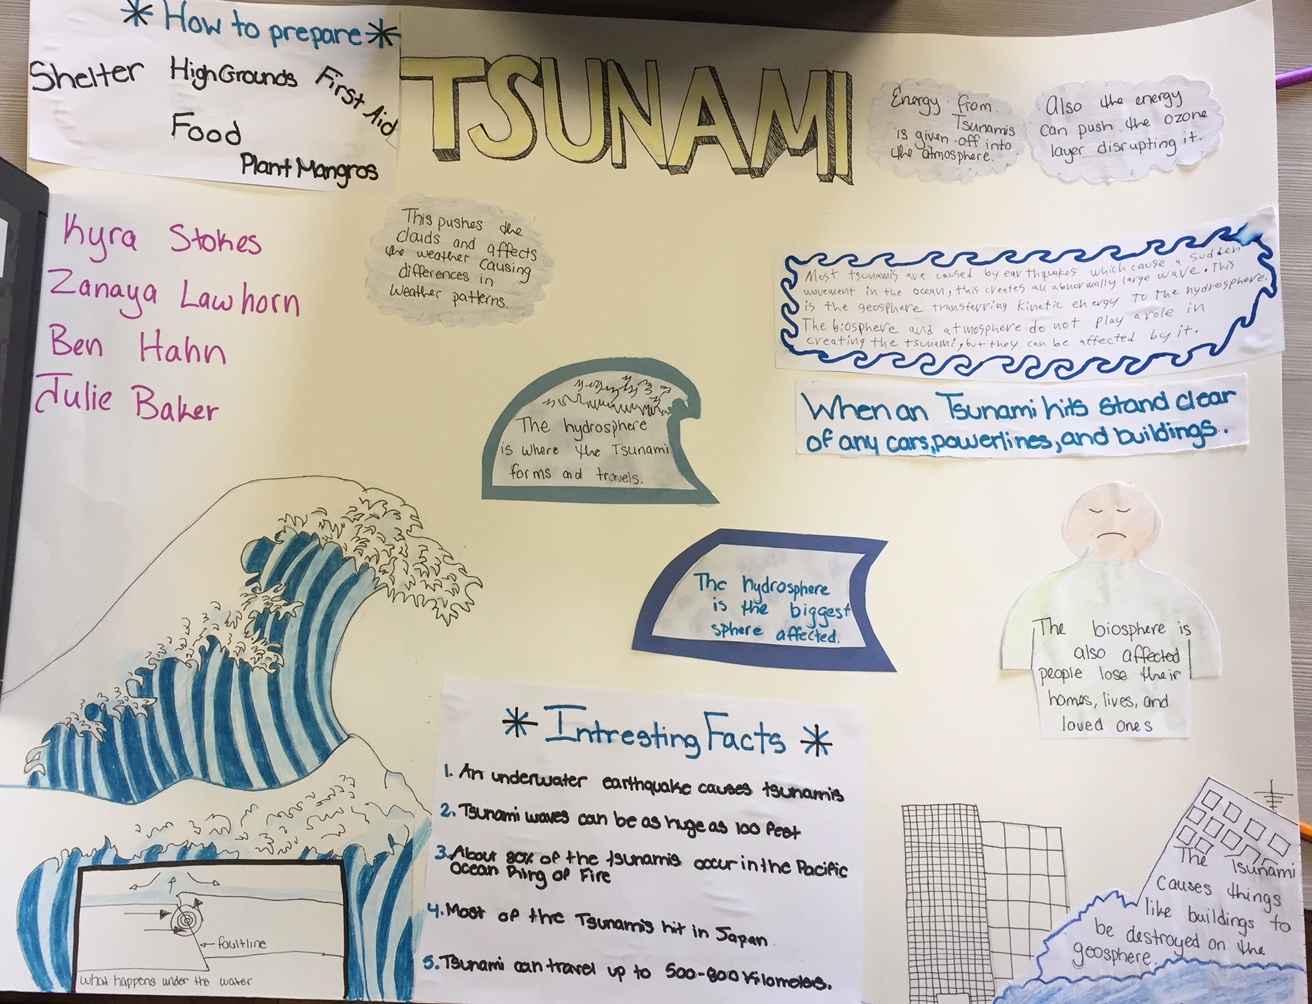 * How to prepare *
Shelter High Grounds First Aid
Food
Plant Mangros
TSUNAMI
Energy from
Tsunamis
is given off into
the atmosphere.
Also the energy
can push the ozone
layer disrupting it.
Kyra Stokes
Zanaya Lawhorn
Ben Hahn
Julie Baker
This pushes the
clouds and affects
the weather causing
differences in
weather patterns.
Most tsunamis are caused by earthquakes which cause a sudden
movement in the ocean, this creates an abnormally large wave. This
is the geosphere transferring kinetic energy to the hydrosphere.
The biosphere and atmosphere do not play a role in
creating the tsunami, but they can be affected by it.
When an Tsunami hits stand clear
of any cars, powerlines, and buildings.
The hydrosphere
is where the Tsunami
forms and travels.
The hydrosphere
is the biggest
sphere affected.
The biosphere is
also affected
people lose their
homes, lives, and
loved ones
* Intresting Facts *
1. An underwater earthquake causes tsunamis
2. Tsunami waves can be as huge as 100 feet
3. About 80% of the tsunamis occur in the Pacific
Ocean Ring of Fire
4. Most of the Tsunamis hit in Japan
5. Tsunami can travel up to 500-800 Kilometes.
faultline
what happens under the water
The Tsunami
causes things
like buildings to
be destroyed on the
geosphere.